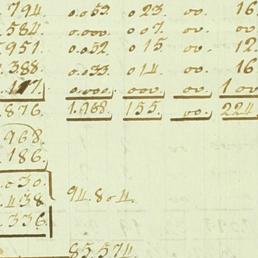 .794 0.053. 0 23. 00. 16
.584. 0.000. 0 07. 00. 00
.951. 0.052 0 15 00. 12.
.388. 0.033. 0 14. 00. 16
.117. 0.000. 000. 00. 1 00
.876. 1.968. 155. 00. 224
.968.
.186.
.030.
.438 94.804.
.336.
85.574.